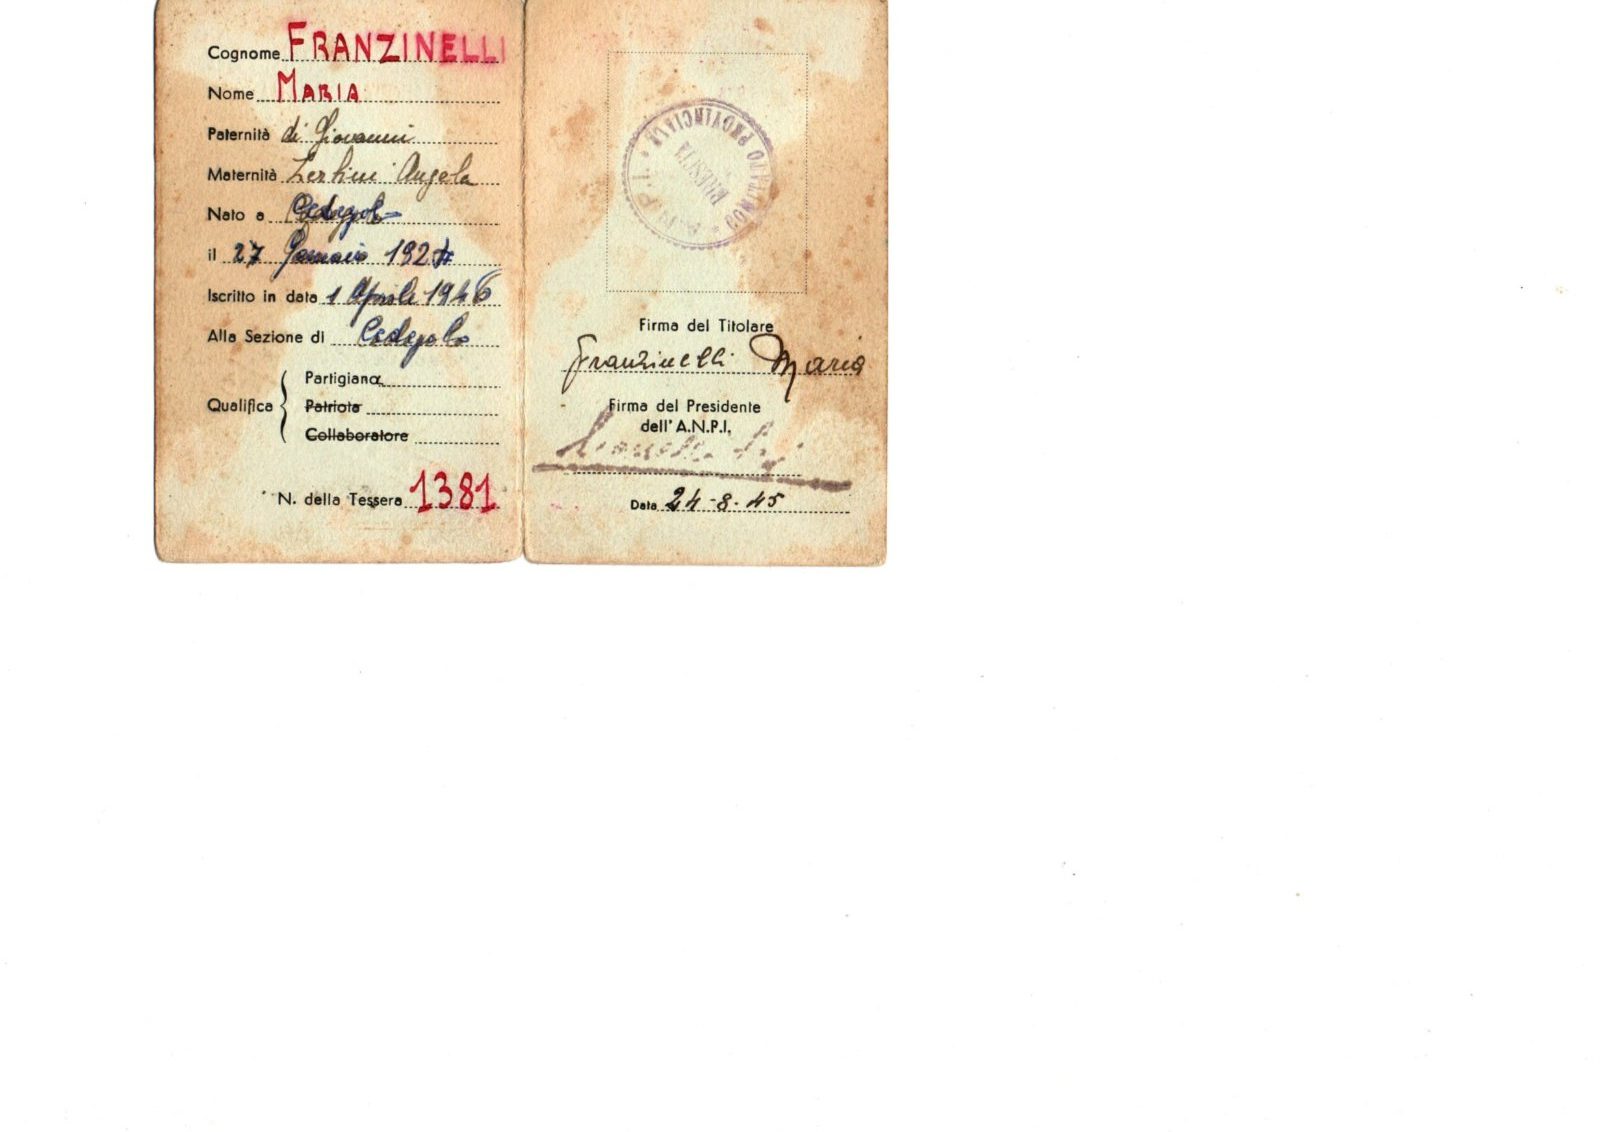 Cognome FRANZINELLI
Nome MARIA
Paternità di Giovanni
Maternità Angela
Nato a Cedegolo
il 27 Gennaio 192
Iscritto in data 1 Aprile 1946
Alla Sezione di Cedegolo
Qualifica
Partigiana
Patriota
Collaboratore
N. della Tessera 1381
A.N.P.I. COMITATO PROVINCIALE
BRESCIA
Firma del Titolare
Franzinelli Maria
Firma del Presidente
dell'A.N.P.I.
Data 24-8-45